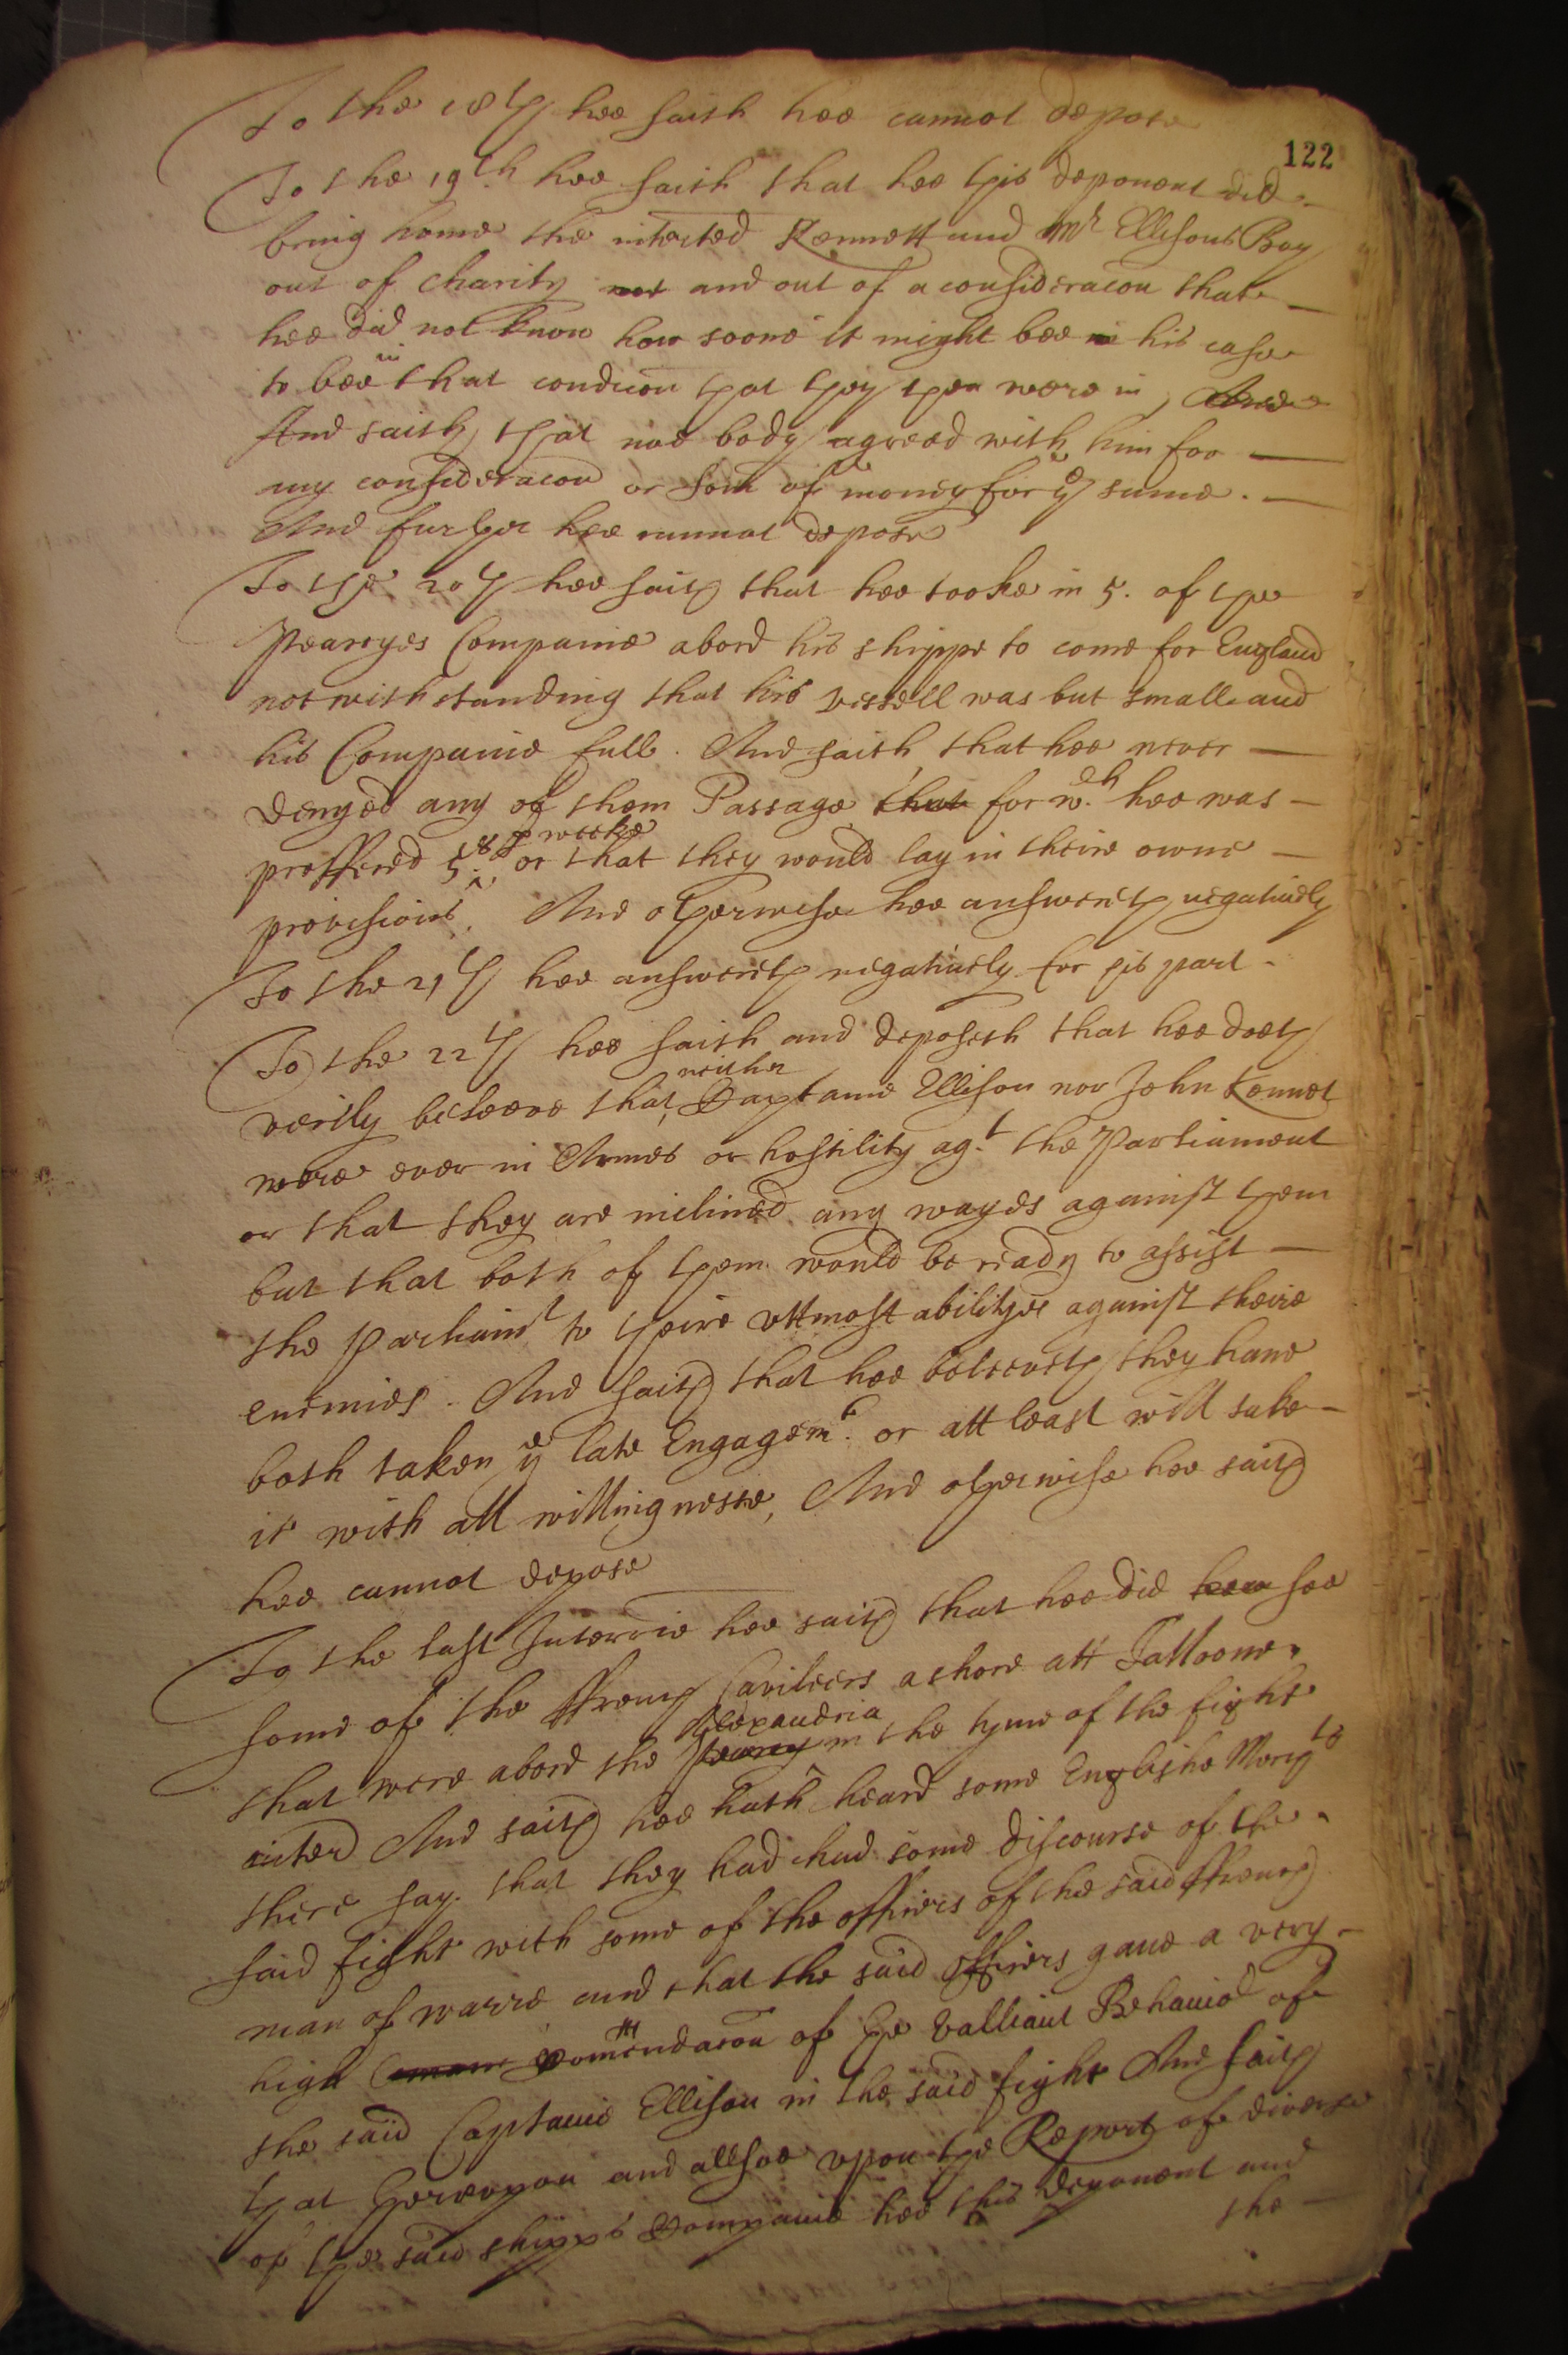 To the 18th hee saith hee cannot depose
122
To the 19th hee saith that hee this deponent did
bring home the intested Kennett and Mr Ellisons Boy
out of charity not and out of a consideracon that
hee did not know how soone it might bee in his case
to bee in that condicon that they then were in, And
And saith that noe body agreed with him for
any consideracon or som of money for ye same.
And further hee cannot depose
To the 20th hee saith that hee tooke in 5. of the
Pearcyes Companie abord his shippe to come for England
notwithstanding that his vessell was but small and
his Companie full. And saith that hee never
denyed any of them Passage that for wch hee was
proffered 5s p weeke or that they would lay in theire owne
provisions. And otherwise hee answereth negatiuely
To the 21th hee answereth negatiuely for his part.
To the 22th hee saith and deposeth that hee doeth
verily beleeve that neither Captaine Ellison nor John Kennet
were ever in Armes or hostility agt. the Parliament
or that they are inclined any wayes against them
but that both of them would be ready to assist
the Parliamt to theire vttmost abilityes against theire
enemies. And saith that hee beleeveth they haue
both taken ye late Engagemt. or att least will take
it with all willingnesse, And otherwise hee saith
hee cannot depose
To the last Interrie hee saith that hee did hea see
some of the ffrench Cavileers ashore att Talloone
that were abord the Pearcy Alexandria in the tyme of the fight
inted And saith hee hath heard some Englishe Merchts
there say that they had had some discourse of the
said fight with some of the officers of the said ffrench
man of warre and that the said officers gaue a very
high Comm Comendacon of the valliant Behauior of
the said Captaine Ellison in the said fight And saith
that herevpon and allsoe vpon the Report of diverse
of the said shipps Companie hee this deponent and
the